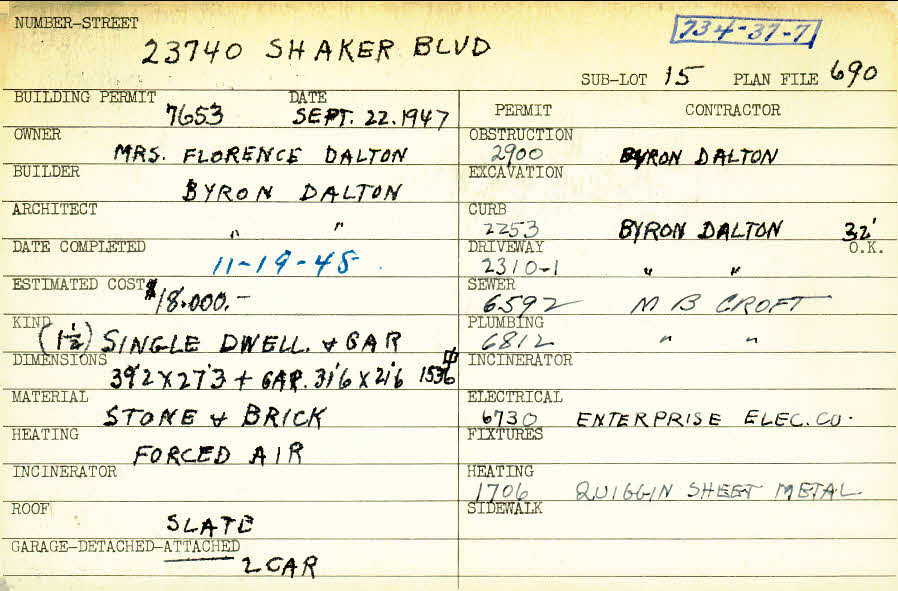 NUMBER-STREET
23740 SHAKER BLVD
734-37-7
SUB-LOT 15 PLAN FILE 690
BUILDING PERMIT 7653 DATE SEPT. 22. 1947
OWNER MRS. FLORENCE DALTON
BUILDER BYRON DALTON
ARCHITECT " "
DATE COMPLETED 11-19-48
ESTIMATED COST $18.000.-
KIND (1½) SINGLE DWELL. & GAR
DIMENSIONS 39'2 X 27'3 + GAR. 31'6 X 21'6 1536
MATERIAL STONE & BRICK
HEATING FORCED AIR
INCINERATOR
ROOF SLATE
GARAGE-DETACHED-ATTACHED 2 CAR
PERMIT CONTRACTOR
OBSTRUCTION 2900 BYRON DALTON
EXCAVATION
CURB 2253 BYRON DALTON 32' O.K.
DRIVEWAY 2310-1 " "
SEWER 6592 M B CROFT
PLUMBING 6812 " "
INCINERATOR
ELECTRICAL 6730 ENTERPRISE ELEC. CO.
FIXTURES
HEATING 1706 QUIGGIN SHEET METAL
SIDEWALK